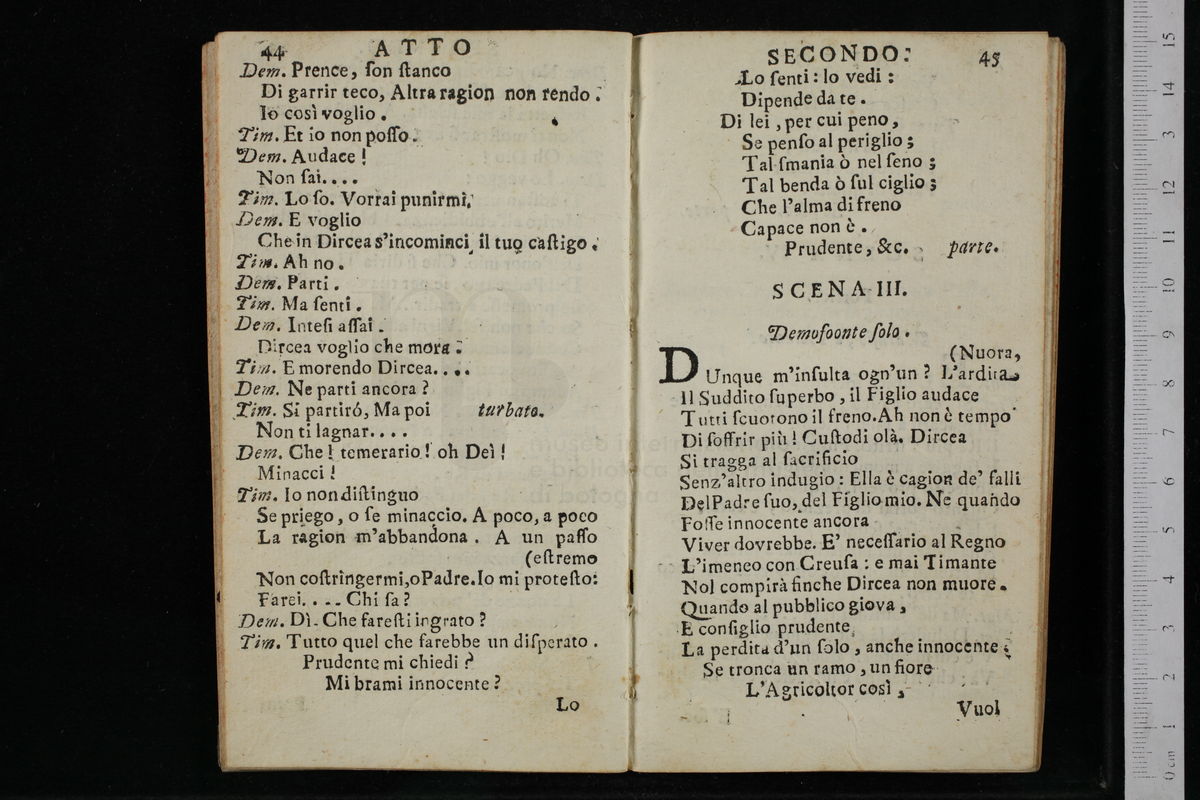 44 ATTO
Dem. Prence, ſon ſtanco
Di garrir teco, Altra ragion non rendo.
Io così voglio.
Tim. Et io non poſſo.
Dem. Audace!
Non ſai....
Tim. Lo ſo. Vorrai punirmi.
Dem. E voglio
Che in Dircea s'incominci il tuo caſtigo.
Tim. Ah no.
Dem. Parti.
Tim. Ma ſenti.
Dem. Inteſi aſſai.
Dircea voglio che mora.
Tim. E morendo Dircea....
Dem. Ne parti ancora?
Tim. Si partiró, Ma poi turbato.
Non ti lagnar....
Dem. Che! temerario! oh Dei!
Minacci!
Tim. Io non diſtinguo
Se priego, o ſe minaccio. A poco, a poco
La ragion m'abbandona. A un paſſo
(eſtremo
Non coſtringermi, o Padre. Io mi proteſto:
Farei.... Chi ſa?
Dem. Dì. Che fareſti ingrato?
Tim. Tutto quel che farebbe un diſperato.
Prudente mi chiedi?
Mi brami innocente?
Lo
SECONDO. 45
Lo ſenti: lo vedi:
Dipende da te.
Di lei, per cui peno,
Se penſo al periglio;
Tal ſmania ò nel ſeno;
Tal benda ò ſul ciglio;
Che l'alma di freno
Capace non è.
Prudente, &c. parte.
SCENA III.
Demofoonte ſolo.
(Nuora,
DUnque m'inſulta ogn'un? L'ardita
Il Suddito ſuperbo, il Figlio audace
Tutti ſcuotono il freno. Ah non è tempo
Di ſoffrir più! Cuſtodi olà. Dircea
Si tragga al ſacrificio
Senz'altro indugio: Ella è cagion de' falli
Del Padre ſuo, del Figlio mio. Ne quando
Foſſe innocente ancora
Viver dovrebbe. E' neceſſario al Regno
L'imeneo con Creuſa: e mai Timante
Nol compirà finche Dircea non muore.
Quando al pubblico giova,
E conſiglio prudente
La perdita d'un ſolo, anche innocente;
Se tronca un ramo, un fiore
L'Agricoltor così,
Vuol